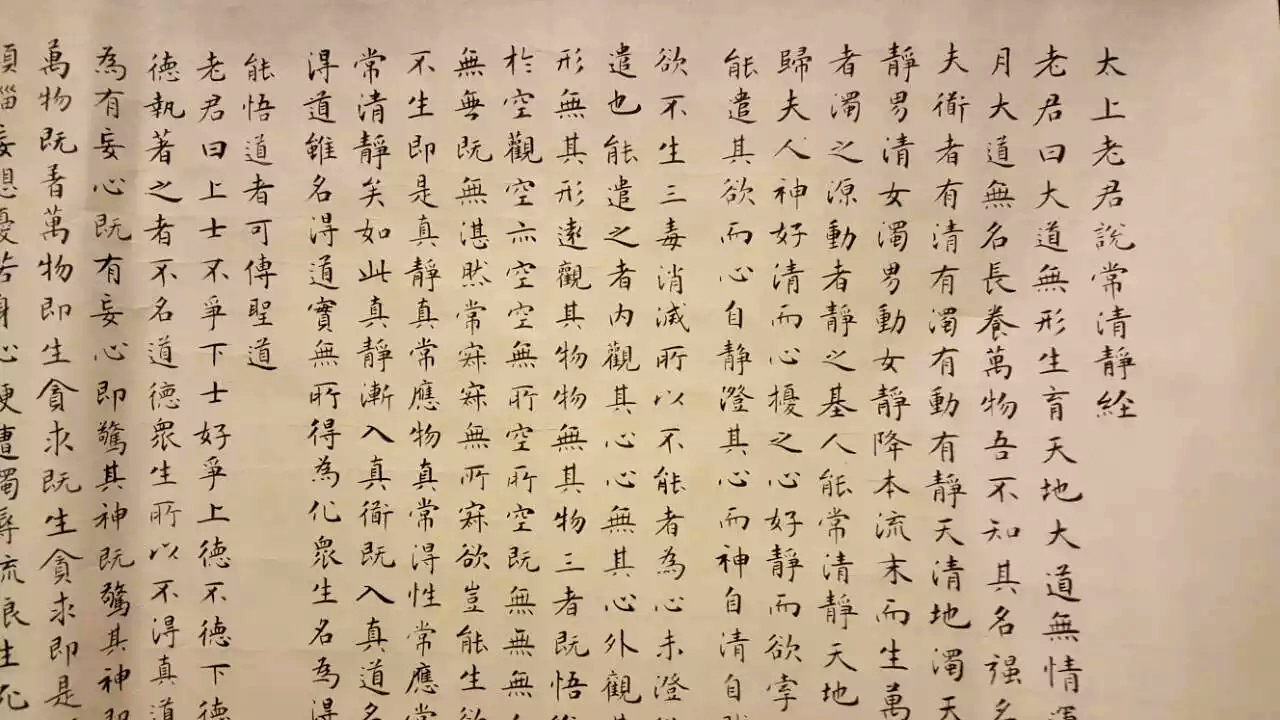 太上老君說常清靜経
老君曰大道無形生育天地大道無情運
月大道無名長養萬物吾不知其名强名
夫衟者有清有濁有動有靜天清地濁天
靜男清女濁男動女靜降本流末而生萬
者濁之源動者靜之基人能常清靜天地
歸夫人神好清而心擾之心好靜而欲牽
能遣其欲而心自靜澄其心而神自清自
欲不生三毒消滅所以不能者為心未澄
遣也能遣之者內觀其心心無其心外觀
形無其形遠觀其物物無其物三者既悟
於空觀空亦空空無所空所空既無無無
無無既無湛然常寂寂無所寂欲豈能生
不生即是真靜真常應物真常得性常應
常清靜矣如此真靜漸入真衟既入真道名
得道雖名得道實無所得為化衆生名為得
能悟道者可傳聖道
老君曰上士不爭下士好爭上德不德下德
德執著之者不名道德衆生所以不得真道
為有妄心既有妄心即驚其神既驚其神即
萬物既着萬物即生貪求既生貪求即是
煩惱妄想憂苦身心便遭濁辱流浪生死